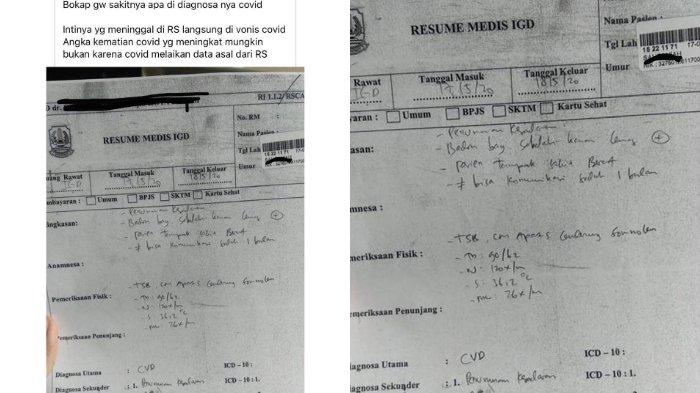 Bokap gw sakitnya apa di diagnosa nya covid
Intinya yg meninggal di RS langsung di vonis covid
Angka kematian covid yg meningkat mungkin
bukan karena covid melaikan data asal dari RS
D dr.
RI 1.1.2/RSCA
RESUME MEDIS IGD
No. RM :
Nama Pasien :
Tgl Lah
18 22 11 71
Umur
uang Rawat
IGD
Tanggal Masuk
17/5/20
Tanggal Keluar
18/5/20
mbayaran :
Umum
BPJS
SKTM
Kartu Sehat
ngkasan:
- Penurunan Kesadaran
- Badan bag. sebelah kanan lemas (+)
- pasien tampak sakit Berat
- # bisa komunikasi sudah 1 bulan
Anamnesa :
Pemeriksaan Fisik :
- TSB, cm Apatis cenderung Somnolen
- TD : 90/62
- N : 120x/m
- S : 36,2 °C
26x/m
Pemeriksaan Penunjang :
Diagnosa Utama : CVD
ICD - 10 :
Diagnosa Sekunder : 1. Penurunan Kesadaran
ICD - 10 : 1.
RESUME MEDIS IGD
Nama Pasien :
Tgl Lah
18 22 11 71
Umur
Rawat
IGD
Tanggal Masuk
17/5/20
Tanggal Keluar
18/5/20
yaran :
Umum
BPJS
SKTM
Kartu Sehat
asan:
- Penurunan Kesadaran
- Badan bag. sebelah kanan lemas (+)
- pasien tampak sakit Berat
- # bisa komunikasi sudah 1 bulan
mnesa :
emeriksaan Fisik :
- TSB, cm Apatis cenderung Somnolen
- TD : 90/62
- N : 120x/m
- S : 36,2 °C
26x/m
emeriksaan Penunjang :
iagnosa Utama : CVD
ICD - 10 :
iagnosa Sekunder : 1. Penurunan Kesadaran
ICD - 10 : 1.